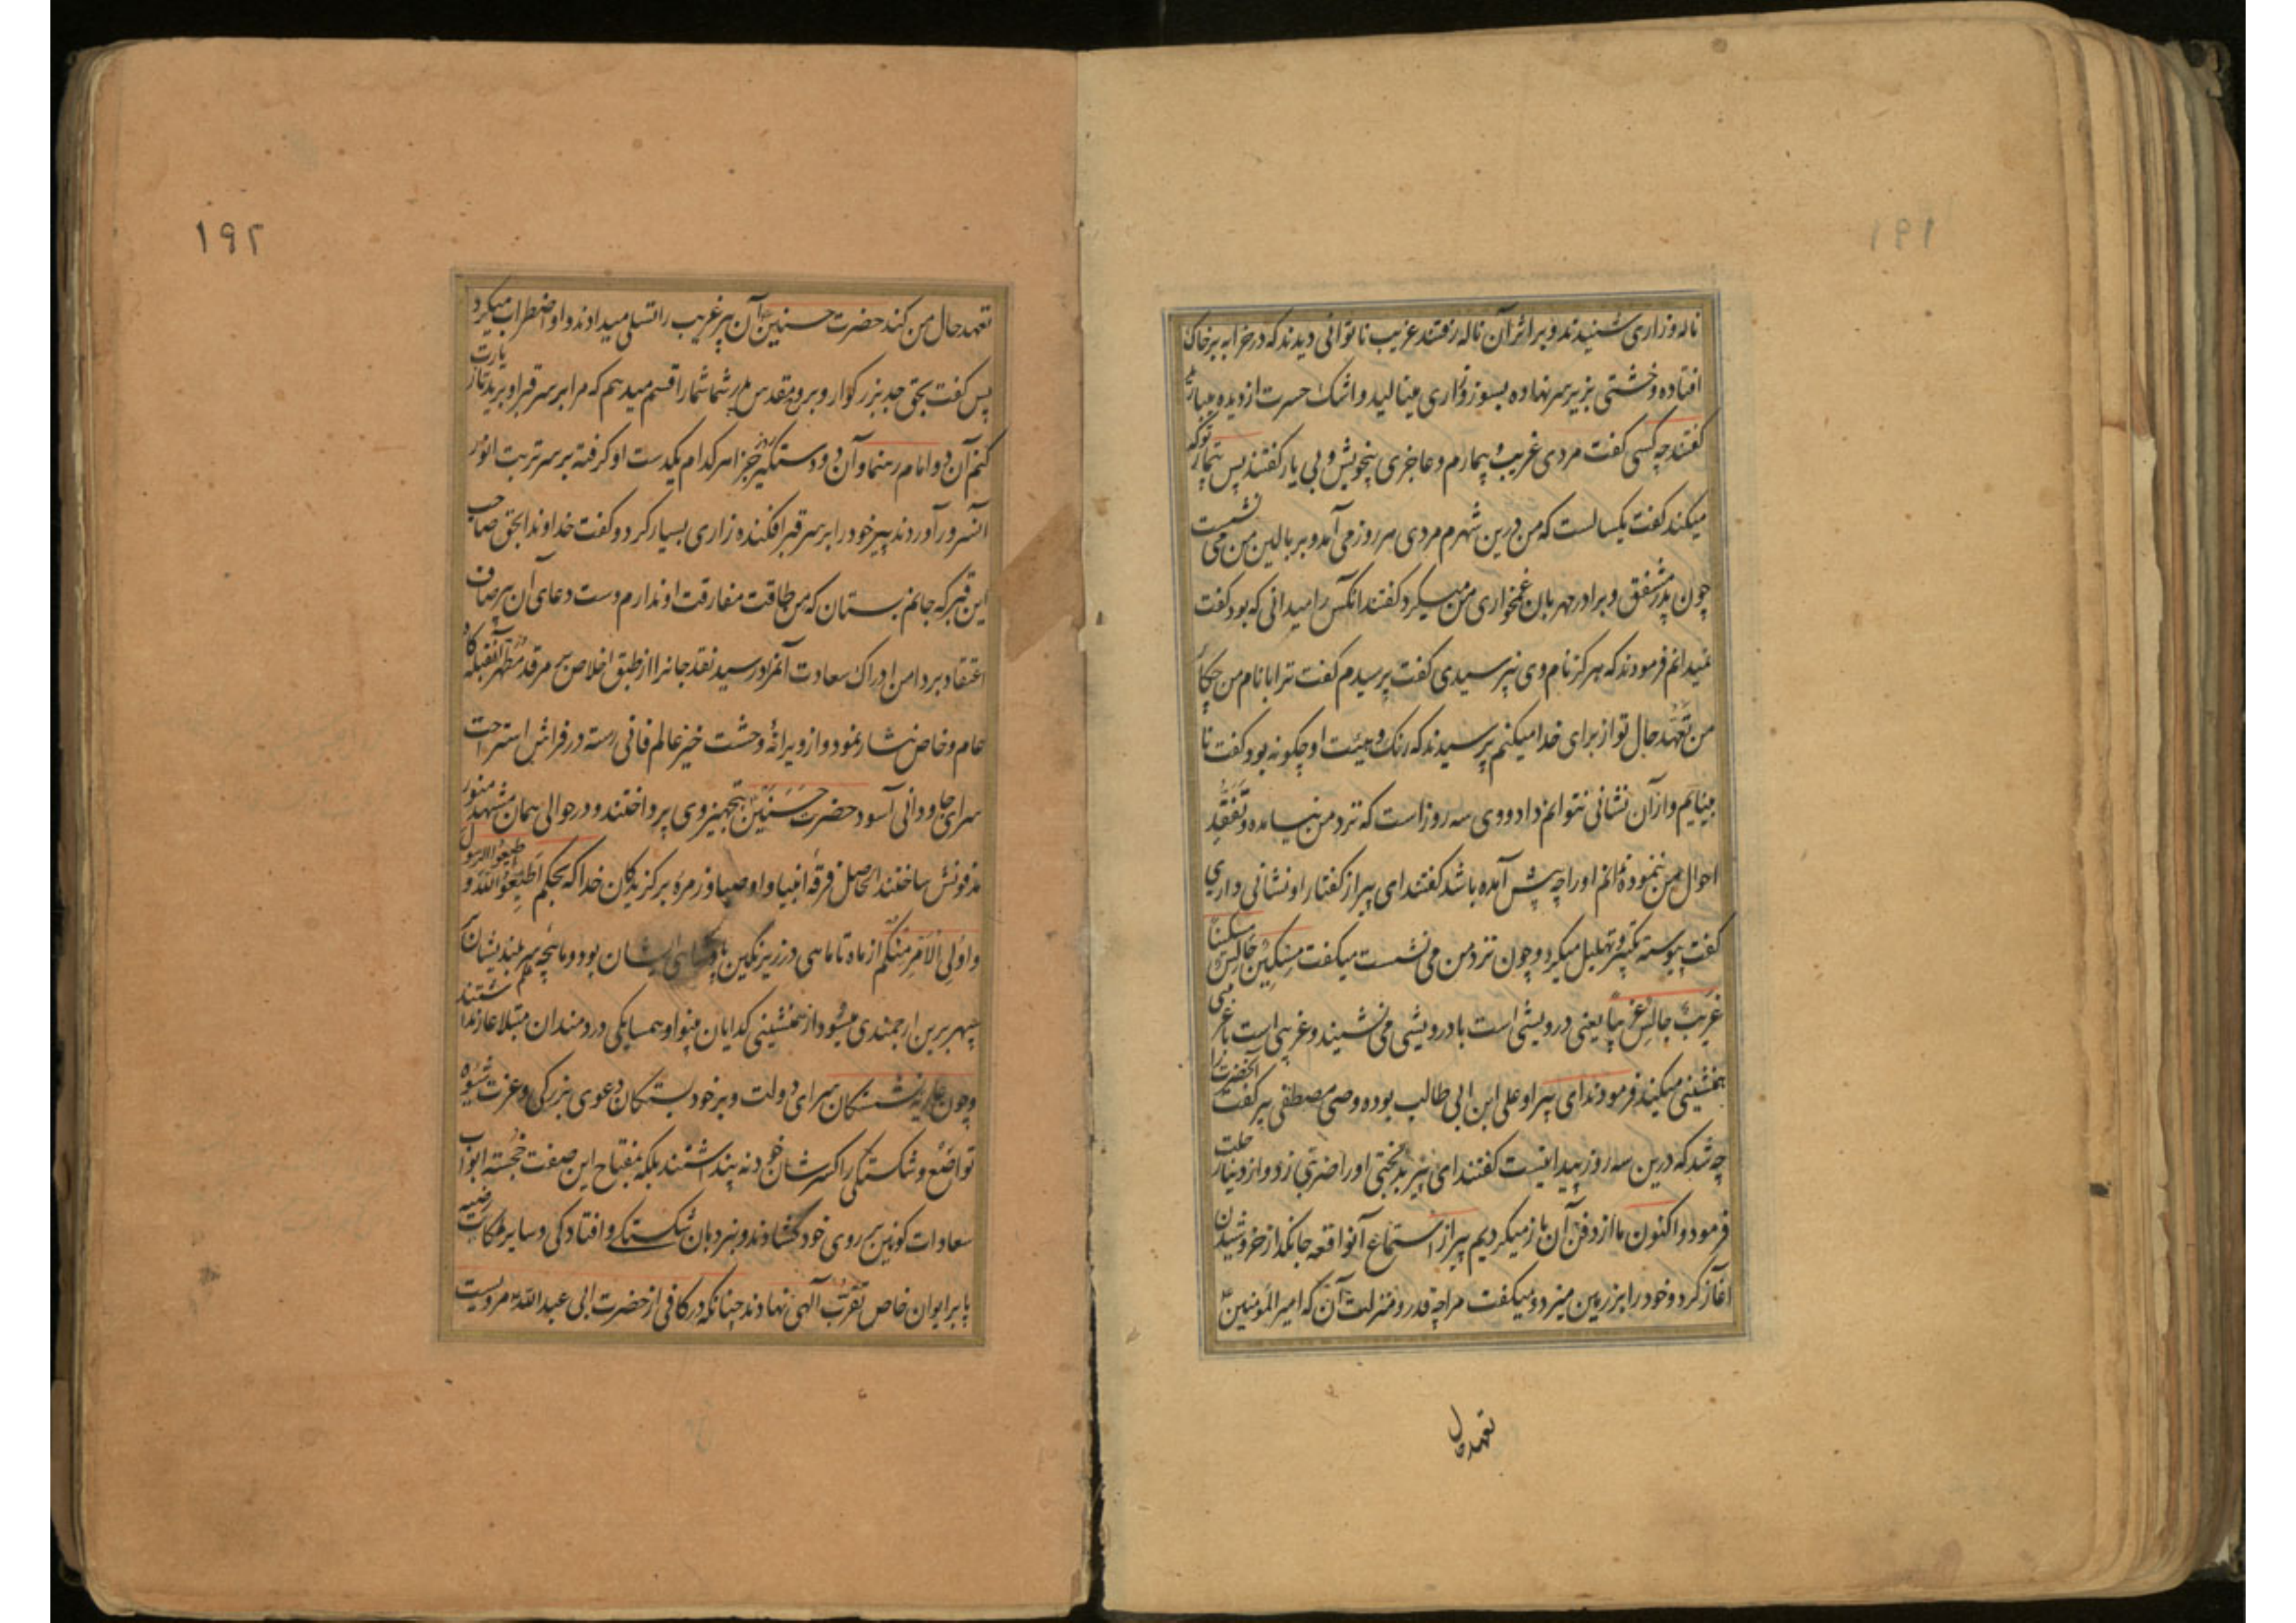 ١٩١
ناله وزاری شنیدند و بر اثر آن ناله رفتند غریب ناتوانی دیدند که در خرابه بر خاک
افتاده و خشتی بزیر سر نهاده بسوز و زاری مینالید و اشک حسرت از دیده میبارید
گفتند چه کسی گفت مردی غریب و بیمارم و عاجزی بیخویش و بی یار گفتند پس تیمار تو که
میکند گفت یکسالست که من درین شهرم مردی هر روز می آمد و بر بالین من می نشست
چون پدر مشفق و برادر مهربان غمخواری من میکرد گفتند آنکس را میدانی که بود گفت
نمیدانم فرمودند که هرگز نام وی نپرسیدی گفت پرسیدم گفت ترا با نام من چکار
من تعهد حال تو از برای خدا میکنم پرسیدند که رنگ و هیئت او چگونه بود گفت نا
بینایم و از آن نشانی نتوانم داد و وی سه روز است که نزد من نیامده و تفقد
احوال من ننموده ندانم او را چه پیش آمده باشد گفتند ای پیر از گفتار او نشانی داری
گفت پیوسته تکبیر و تهلیل میکرد و چون نزد من می نشست میگفت مسکین جالس مسکینا
غریب جالس غریبا یعنی درویشی است با درویشی می نشیند و غریبی است با غریبی
همنشینی میکند فرمودند ای پیر او علی ابن ابی طالب بوده وصی مصطفی پیر گفت آنحضرت را
چه شد که درین سه روز پیدا نیست گفتند ای پیر بدبختی او را ضربتی زد و از دنیا رحلت
فرمود و اکنون ما از دفن آن باز میگردیم پیر از استماع آنواقعه جانگداز خروشیدن
آغاز کرد و خود را بر زمین میزد و میگفت مرا چه قدر و منزلت آن که امیر المؤمنین
تعهد حال
١٩٢
تعهد حال من کند حضرت حسنین آن پیر غریب را تسلی میدادند و او اضطراب میکرد
پس گفت بحق جد بزرگوار و بروح مقدس پدر شما شما را قسم میدهم که مرا بر سر قبر او برید تا زیارت
کنم آن دو امام رهنما و آن دو دستگیر روز جزا هر کدام یکدست او گرفته بر سر تربت انور
آنسرور آوردند پیر خود را بر سر قبر افکنده زاری بسیار کرد و گفت خداوندا بحق صاحب
این قبر که جانم بستان که من طاقت مفارقت او ندارم دست دعای آن پیر صاف
اعتقاد بر دامن ادراک سعادت آنمراد رسید نقد جانرا از طبق اخلاص بر مرقد مطهر آنقبله گاه
عام و خاص نثار نمود و از ویرانهٔ وحشت خیز عالم فانی رسته در فراش استراحت
سرای جاودانی آسود حضرت حسنین بتجهیز وی پرداختند و در حوالی همان مشهد منور
مدفونش ساختند الحاصل فرقهٔ انبیا و اوصیا و زمرهٔ برگزیدگان خدا که بحکم اطیعوا الله و اطیعوا الرسول
و اولی الامر منکم از ماه تا ماهی در زیر نگین ایشان بود و ماهچه علم سر بلندیشان بر
سپهر برین ارجمندی میسود از همنشینی گدایان بینوا و همسایگی دردمندان مبتلا عار نداشتند
و چون نشستگان سرای دولت و بر خود بستگان دعوی بزرگی و عزت شیوه
تواضع و شکستگی را کسر شان خود نه پنداشتند بلکه بمفتاح این صفت خجسته ابواب
سعادات کونین بر روی خود گشادند و بنردبان شکستگی و افتادگی و سایر ملکات رضیه
پا بر ایوان خاص تقرب آلهی نهادند چنانکه در کافی از حضرت ابی عبد الله مرویست